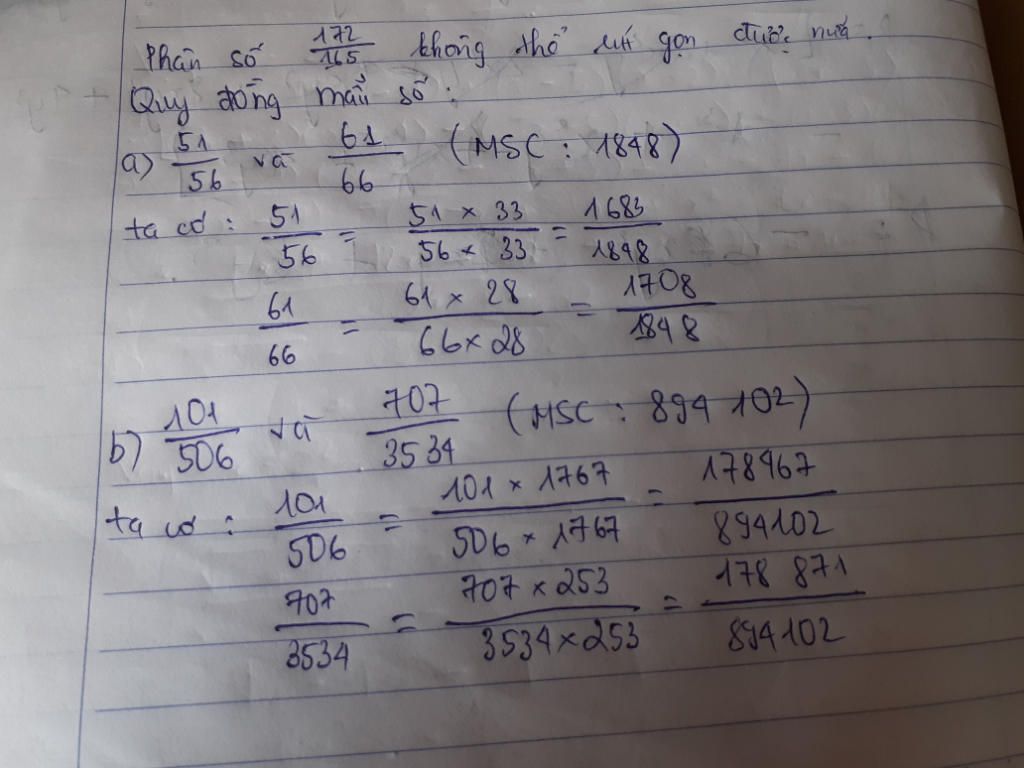 Phân số 172/165 không thể rút gọn được nữa.
Quy đồng mẫu số:
a) 51/56 và 61/66 (MSC: 1848)
ta có: 51/56 = 51 × 33/56 × 33 = 1683/1848
61/66 = 61 × 28/66 × 28 = 1708/1848
b) 101/506 và 707/3534 (MSC: 894 102)
ta có: 101/506 = 101 × 1767/506 × 1767 = 178467/894102
707/3534 = 707 × 253/3534 × 253 = 178 871/894102